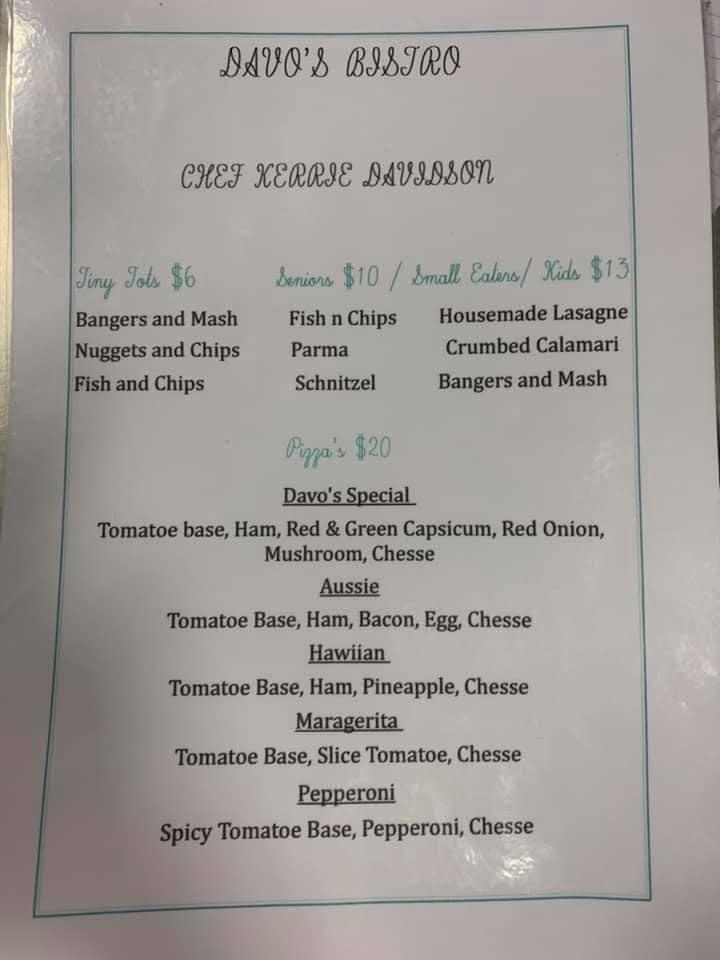 DAVO'S BISTRO
CHEF KERRIE DAVIDSON
Tiny Tots $6 Seniors $10 / Small Eaters/ Kids $13
Bangers and Mash Fish n Chips Housemade Lasagne
Nuggets and Chips Parma Crumbed Calamari
Fish and Chips Schnitzel Bangers and Mash
Pizza's $20
Davo's Special
Tomatoe base, Ham, Red & Green Capsicum, Red Onion,
Mushroom, Chesse
Aussie
Tomatoe Base, Ham, Bacon, Egg, Chesse
Hawiian
Tomatoe Base, Ham, Pineapple, Chesse
Maragerita
Tomatoe Base, Slice Tomatoe, Chesse
Pepperoni
Spicy Tomatoe Base, Pepperoni, Chesse